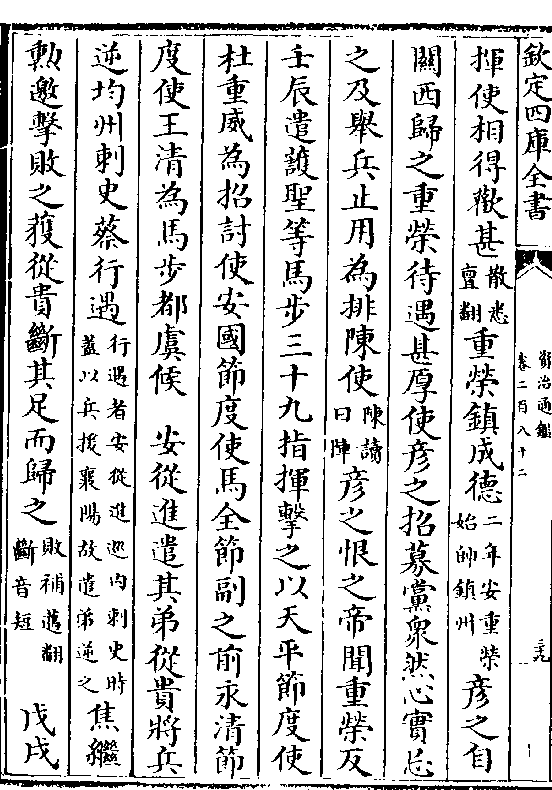 欽定四庫全書
資治通鑑
卷二百八十二
三九
揮使相得歡甚散悉亶翻重榮鎮成德二年安重榮始帥鎮州彦之自
關西歸之重榮待遇甚厚使彦之招募黨衆然心實忌
之及舉兵止用為排陳使陳讀曰陣彦之恨之帝聞重榮反
壬辰遣護聖等馬步三十九指揮擊之以天平節度使
杜重威為招討使安國節度使馬全節副之前永清節
度使王清為馬步都虞候　安從進遣其弟從貴將兵
逆均州刺史蔡行遇行遇者安從進巡内刺史時蓋以兵援襄陽故遣弟逆之焦繼
勲邀擊敗之獲從貴斷其足而歸之敗補邁翻斷音短　戊戌